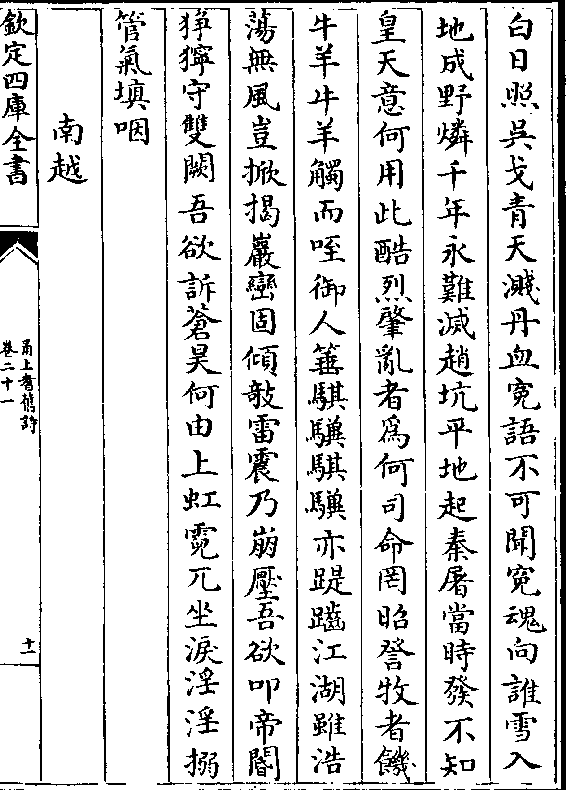 白日照吳戈青天濺丹血冤語不可聞冤魂向誰雪入
地成野燐千年永難滅趙坑平地起秦屠當時發不知
皇天意何用此酷烈肇亂者爲何司命罔昭詧牧者饑
牛羊牛羊觸而咥御人箠騏驥騏驥亦踶躤江湖雖浩
蕩無風豈掀揭巖巒固傾攲雷震乃崩壓吾欲叩帝閽
猙獰守雙闕吾欲訴蒼昊何由上虹霓兀坐淚淫淫搦
管氣填咽
南越
欽定四庫全書
甬上耆舊詩
卷二十一
十一